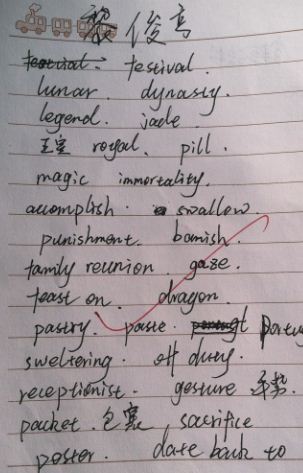 俊鸟
festival.
lunar dynasty.
legend. jade.
王室 royal. pill.
magic immortality.
accomplish. swallow.
punishment. banish.
family reunion. gaze.
feast on. dragon.
pastry. paste.
sweltering. off duty.
receptionist. gesture 手势.
packet. 包裹, sacrifice
poster. date back to